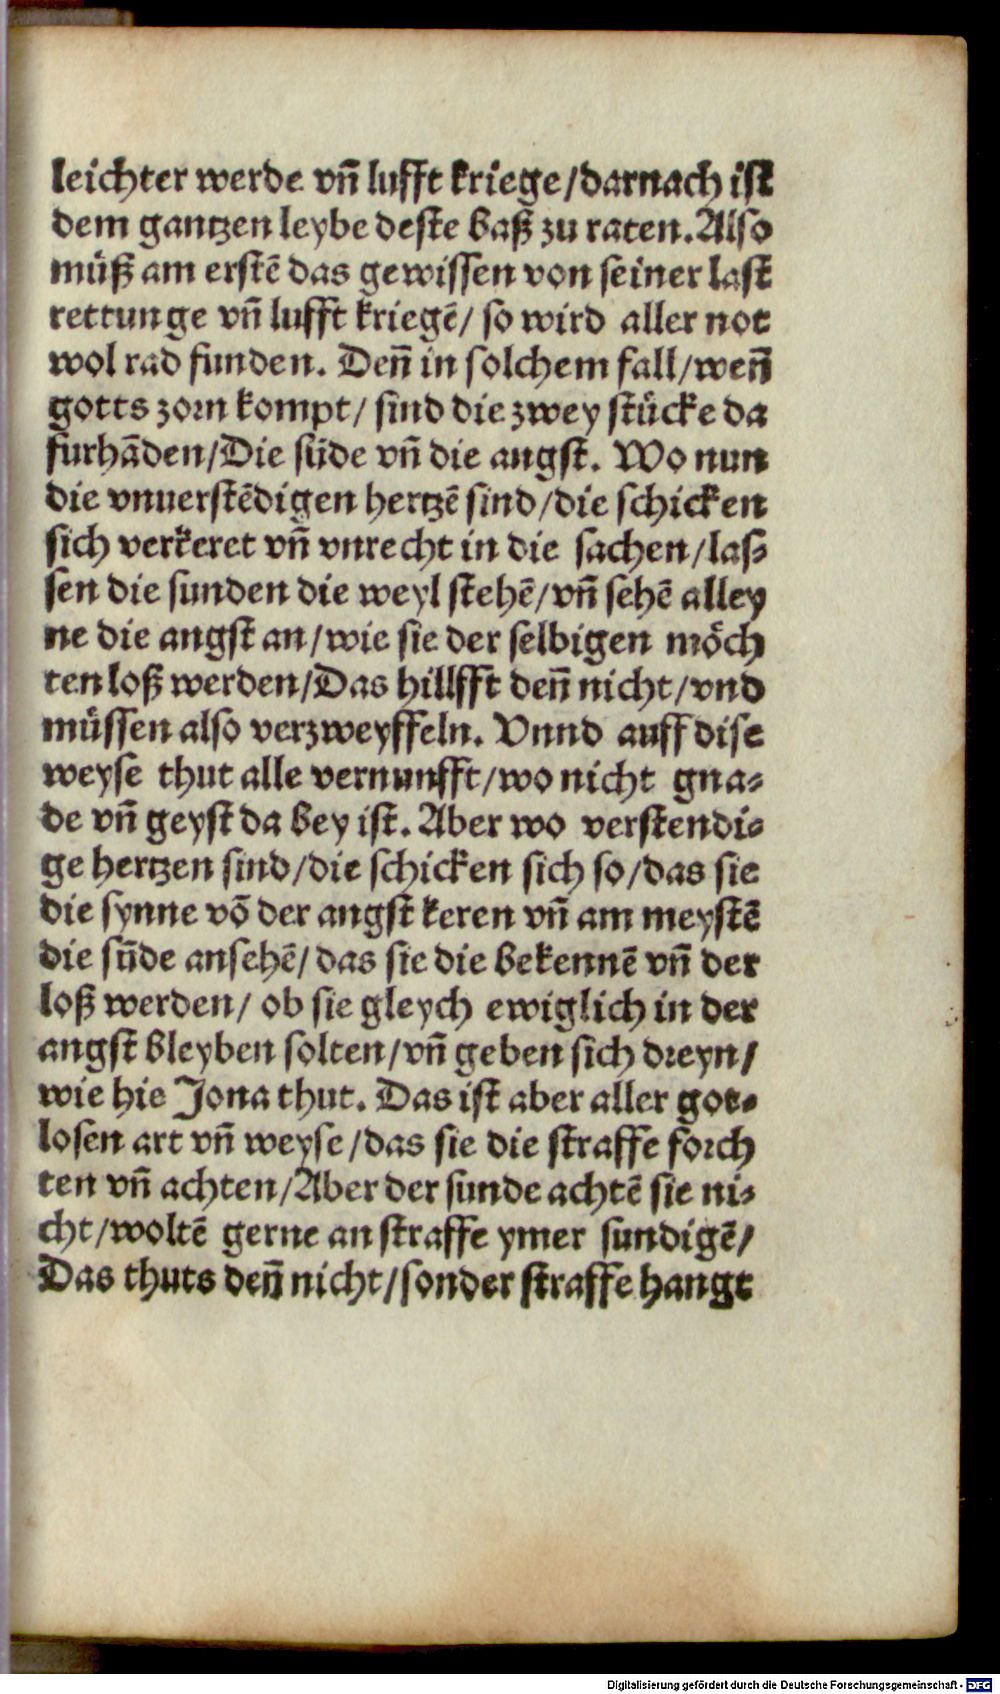 leichter werde vñ lufft kriege/darnach ist
dem gantzen leybe deste baß zu raten. Also
müß am erstē das gewissen von seiner last
rettunge vñ lufft kriegē/ so wird aller not
wol rad funden. Deñ in solchem fall/weñ
gotts zorn kompt/ sind die zwey stücke da
furhāden/Die sűde vñ die angst. Wo nun
die vnuerstēdigen hertzē sind/die schicken
sich verkeret vñ vnrecht in die sachen/las-
sen die sunden die weyl stehē/vñ sehē alley
ne die angst an/wie sie der selbigen möch
ten loß werden/Das hillfft deñ nicht/vnd
müssen also verzweyffeln. Vnnd auff dise
weyse thut alle vernunfft/wo nicht gna-
de vñ geyst da bey ist. Aber wo verstendi-
ge hertzen sind/die schicken sich so/das sie
die synne vō der angst keren vñ am meystē
die sūde ansehē/das sie die bekennē vñ der
loß werden/ ob sie gleych ewiglich in der
angst bleyben solten/vñ geben sich dreyn/
wie hie Jona thut. Das ist aber aller got-
losen art vñ weyse/das sie die straffe förch
ten vñ achten/Aber der sunde achtē sie ni-
cht/woltē gerne an straffe ymer sundigē/
Das thuts deñ nicht/sonder straffe hangt
Digitalisierung gefördert durch die Deutsche Forschungsgemeinschaft - DFG